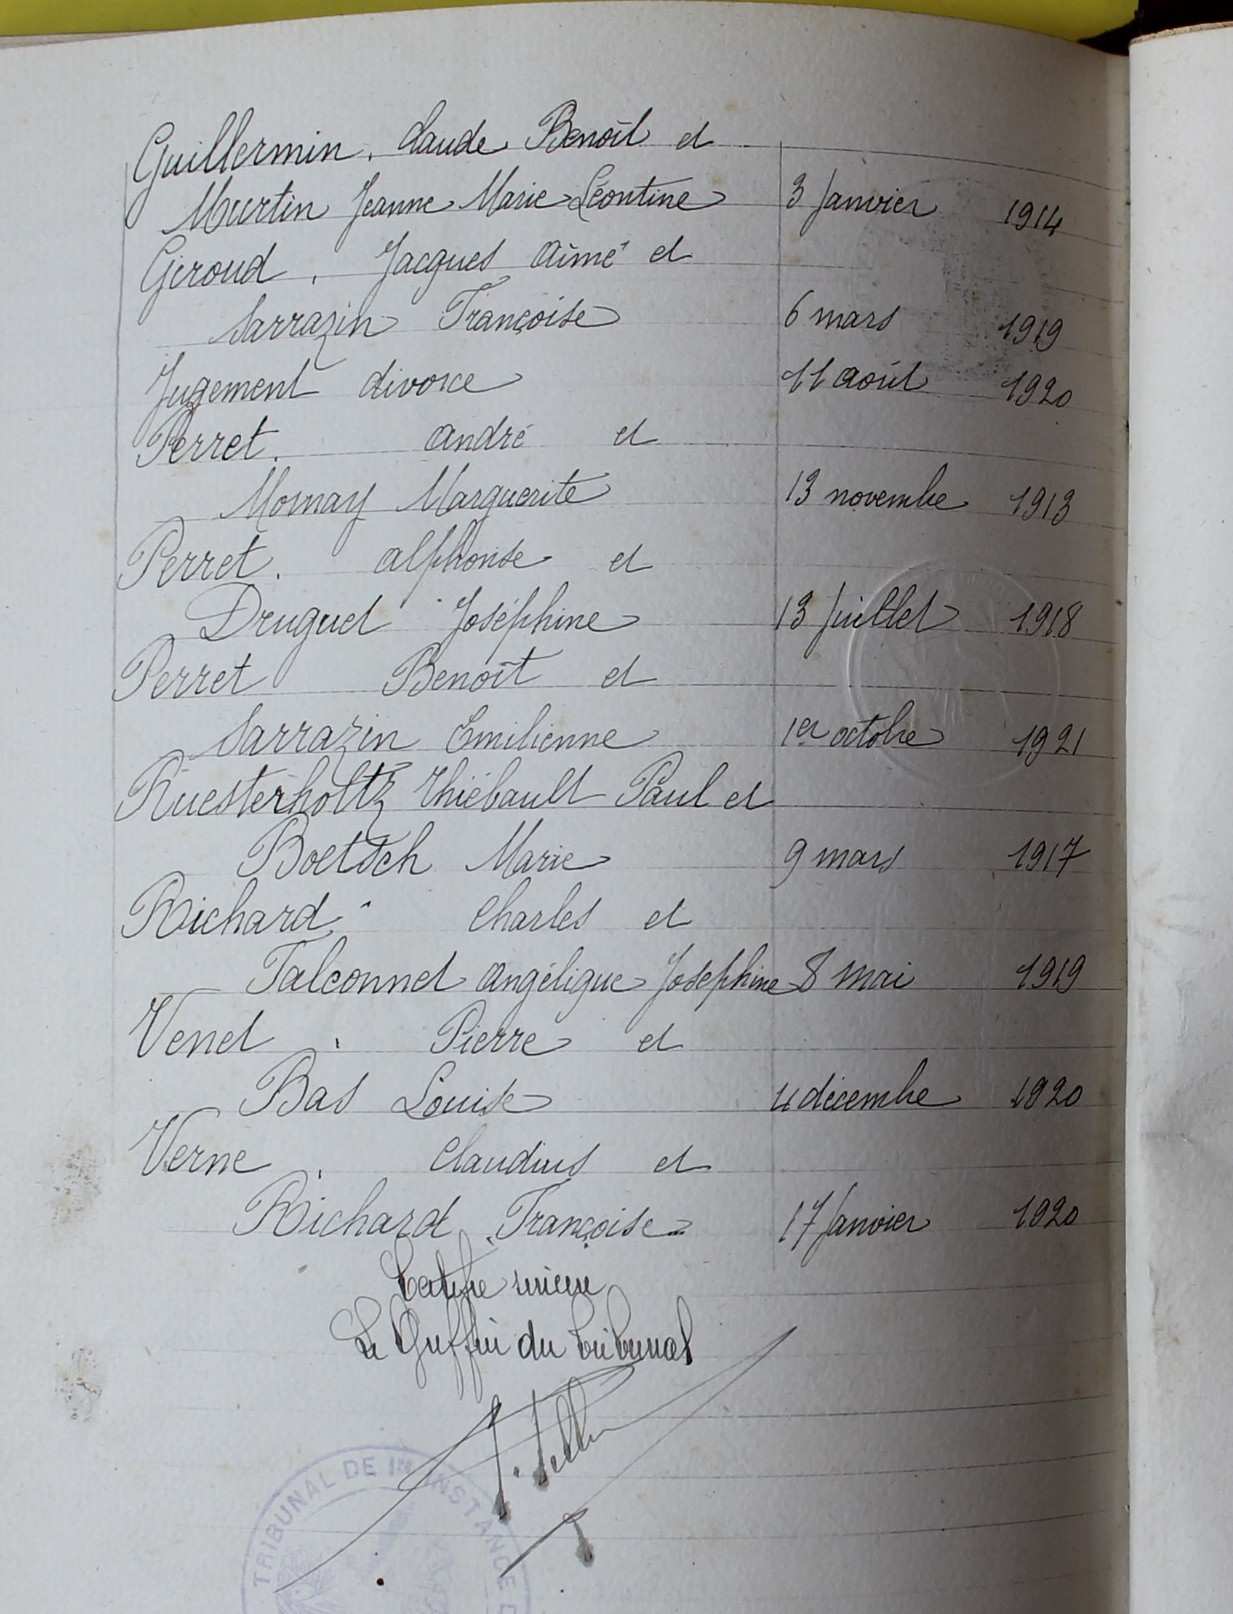 Guillermin, Claude Benoît et
Murtin Jeanne Marie Léontine 3 Janvier 1914
Giroud, Jacques Aimé et
Sarrazin Françoise 6 mars 1919
Jugement divorce 11 Août 1920
Perret. André et
Mornay Marguerite 13 novembre 1913
Perret. Alphonse et
Druguet Joséphine 13 Juillet 1918
Perret Benoît et
Sarrazin Emilienne 1er octobre 1921
Ruesterholtz Thiébault Paul et
Boetsch Marie 9 mars 1917
Richard Charles et
Falconnet Angélique Joséphine 8 mai 1919
Venet. Pierre et
Bas Louise 4 décembre 1920
Verne. Claudius et
Richard Françoise 17 Janvier 1920
Certifié sincère
Le Greffier du Tribunal
TRIBUNAL DE 1re INSTANCE